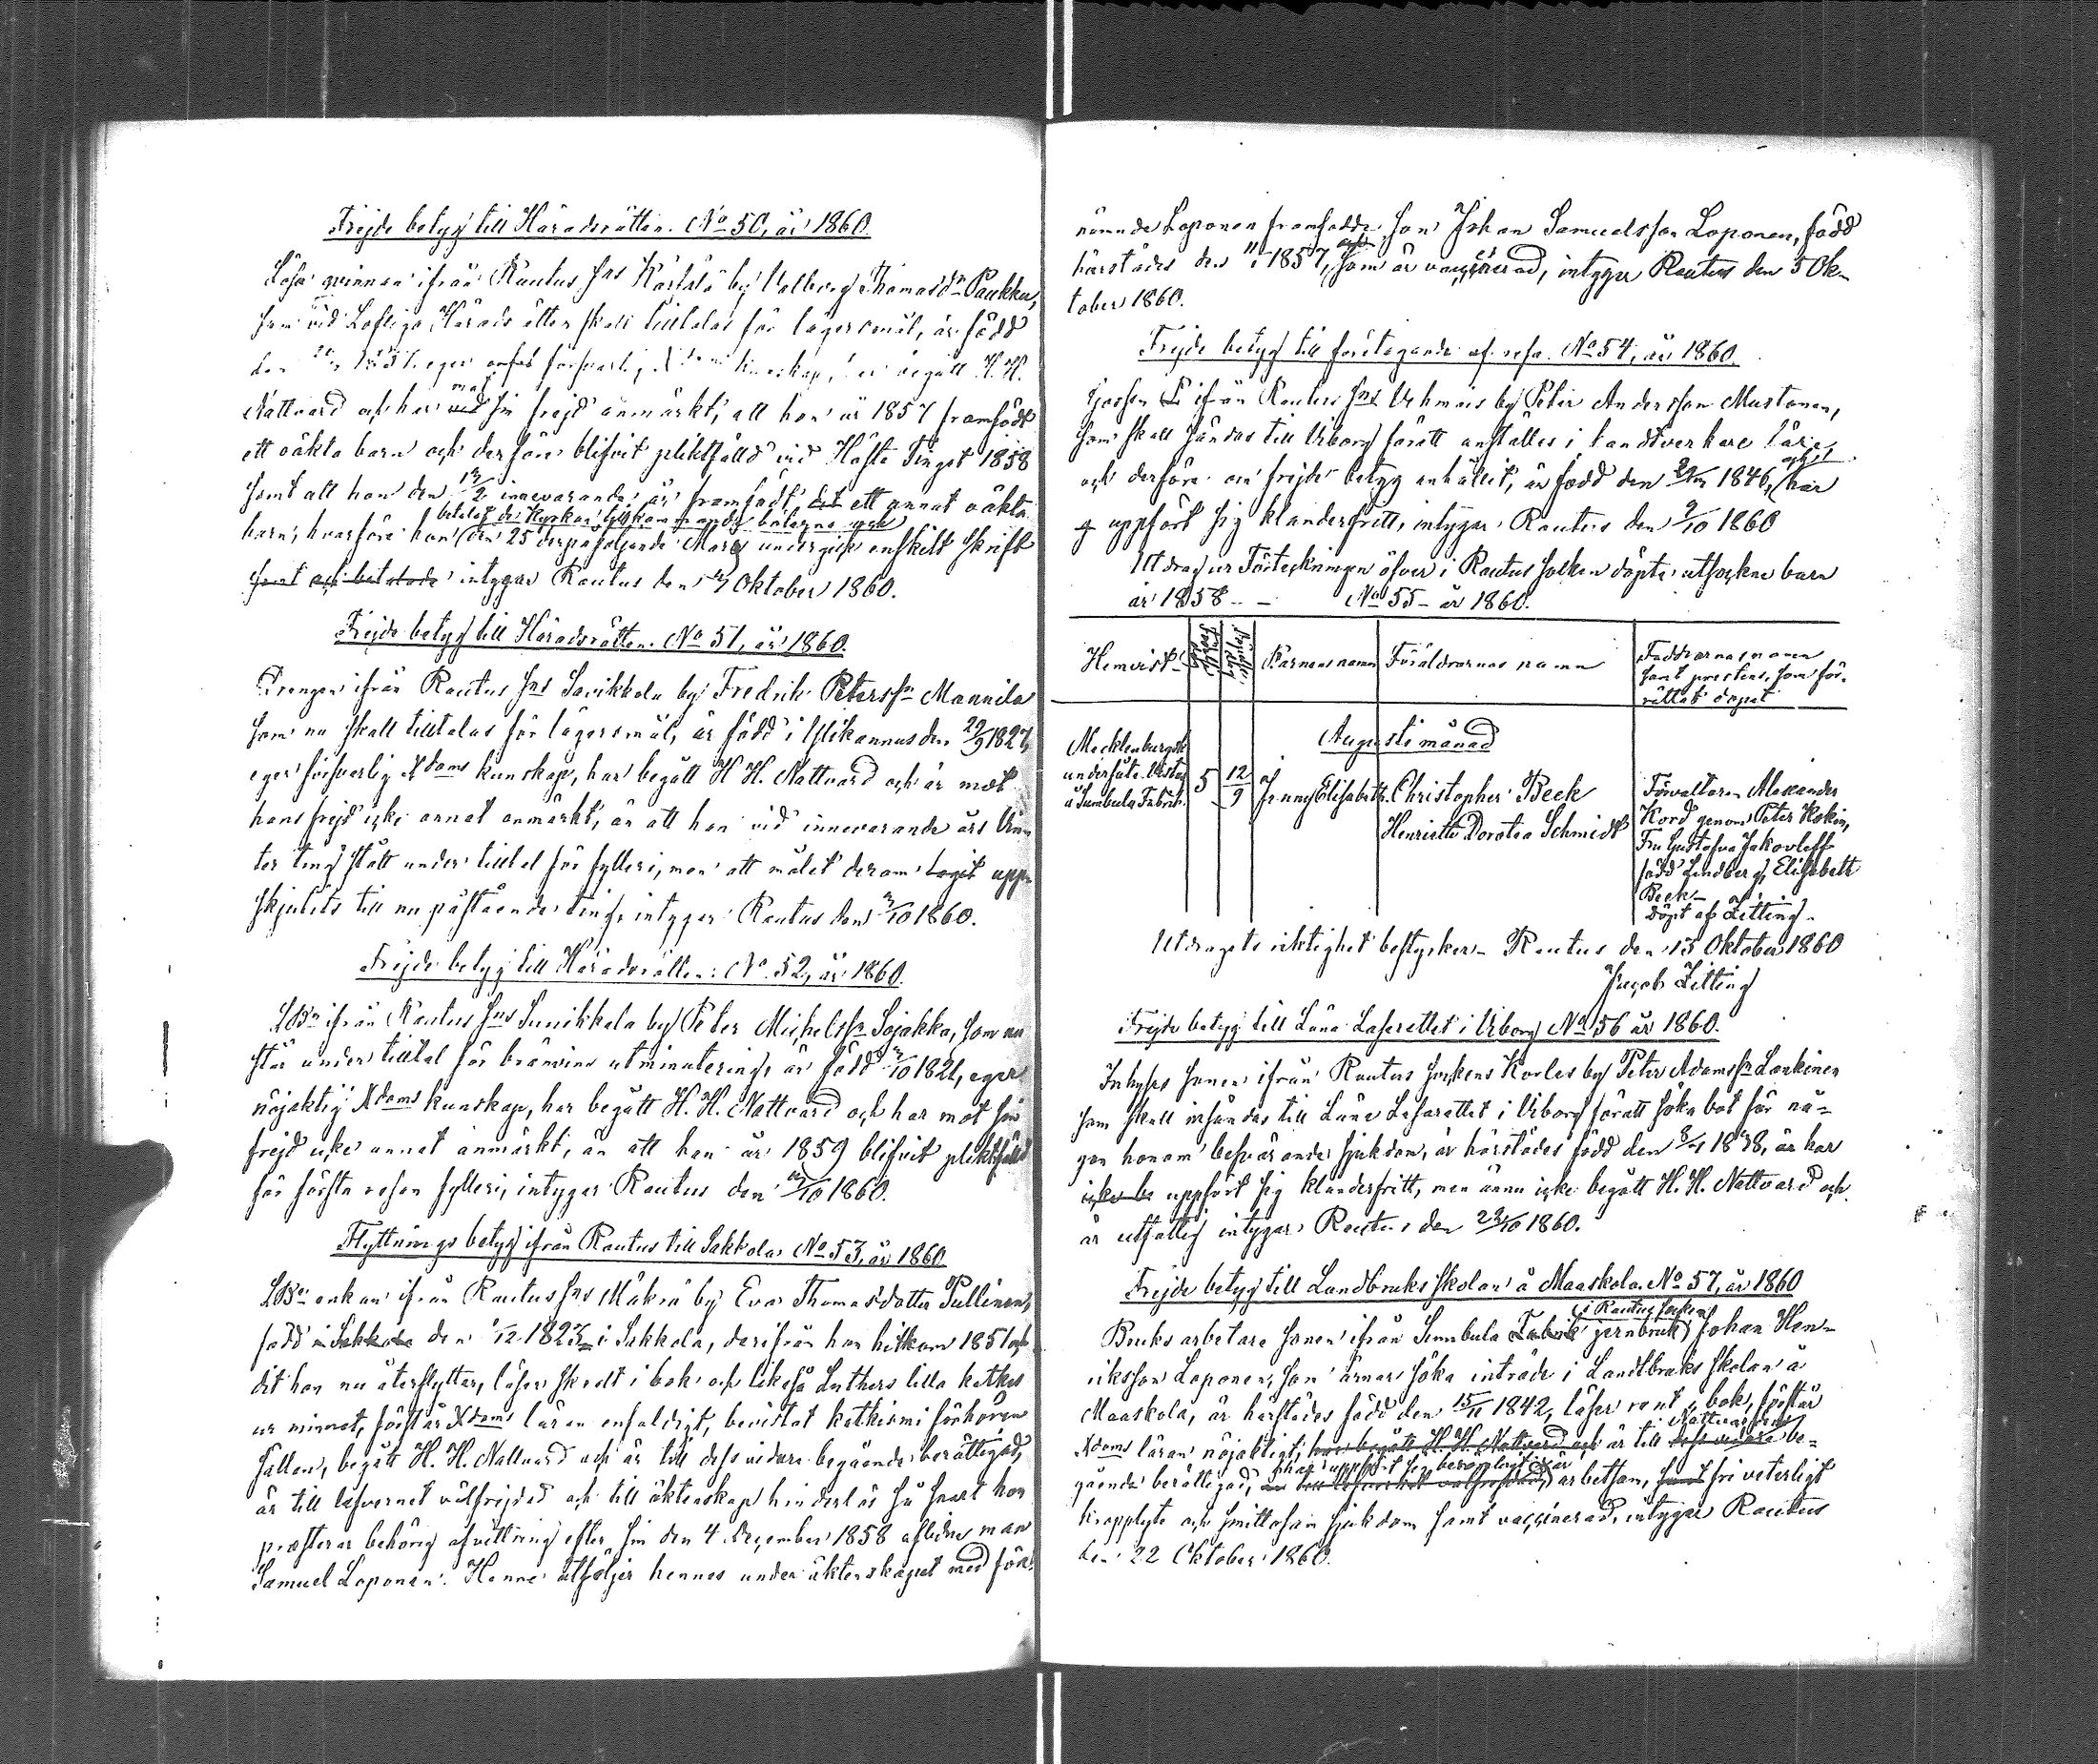 Frejde betyg till Häradsrätten. No 50, år 1860.
Lösa qvinnan ifrån Rautus Sns by Valborg Thomasdr Paukku,
som vid Lofliga Häradsrätten skall tilltalas för lägersmål, är född
den eger försvarlig kunskap, begått H. H.
Nattvard och har mot vid sin frejd anmärkt, att hon år 1857 framfödt
ett oäkta barn och derföre blifvit pliktfälld vid Höste Tinget 1858
samt att hon den innevarande år framfödt det ett annat oäkta
betalat de Kyrkan tillkommande böterne och
barn, hvarföre hon den 25 derpåföljande Mars undergick enskilt skrift
samt och betalade intygar Rautus den Oktober 1860.
Frejde betyg till Häradsrätten. No 51, år 1860.
Drengen ifrån Rautus Sns Savikkola by Fredrik Peterssn Mannila
som nu skall tilltalas för lägersmål, är född i den 29/9 1827,
eger försvarlig Xdoms kunskap, har begått H H. Nattvard och är mot
hans frejd icke annat anmärkt, än att han vid innevarande års Vin
ter ting stått under tilltal för fylleri, men att målet derom tagit upp-
skjutits till nu påstående ting, intygar Rautus den /10 1860.
Frejde betyg till Häradsrätten: No 52, år 1860.
ifrån Rautus Sns Sunikkala by Peter Michelssn Sojakka, som nu
står under tilltal för bränvins utminutering, är född /10 1821, eger
nöjaktig Xdoms kunskap, har begått H. H. Nattvard och har mot sin
frejd icke annat anmärkt, än att han år 1859 blifvit pliktfälld
för första resan fylleri, intygar Rautus den /10 1860.
Flyttnings betyg ifrån Rautus till Sakkola No 53, år 1860
enkan ifrån Rautus Sns Mäkrä by Eva Thomasdotter Pullinen,
född i Sakkola den /12 182 i Sakkola, derifrån hon hitkom 1851 och
dit hon nu återflyttar, läser skralt i bok och likaså Luthers lilla kathes
ur minnet, förstår Xdoms läran enfaldigt, bevistat kathismi förhören
sällan, begått H. H. Nattvard och är till dess vidare begående berättigad,
är till lefvernet välfrejdad och till äktenskap hinderlös så snart hon
presterar behörig afvittring efter sin den 4 December 1858 aflidne man
Samuel Loponen. Henne åtföljer hennes under äktenskapet med för-
nämnde Loponen framfödde son Johan Samuelsson Loponen, född
härstädes den 1857, som är vaccinerad, intygar Rautus den 5 Ok-
tober 1860.
Frejde betyg till företagande af resa. No 54, år 1860.
Gossen ifrån Rautus Sns Vehmais by Peter Andersson Mustonen,
som skall sändas till Viborg föratt anställes i handtverkare lära
och derföre om frejde betyg anhållit, är född den 1846, och har
uppfört sig klanderfritt, intygar Rautus den 9/10 1860
Utdrag ur Förteckningen öfver i Rautus socken döpte utsockne barn
år 1858 -- No 55 - år 1860.
Hemvist Barnens namn Föräldrarnas namn Faddrarnas namn
samt prestens, som för-
rättat dopet
Augusti månad
Mecklenburgsk
undersåte
å Sumbula Fabrik. 5 12/9 Jenny Elisabeth. Christopher Beck
Henriette Dorotea Schmidt
Förvaltaren Alexander
Nord genom Peter Hokin,
Fru Gustafva Jakovleff
född Lindberg, Elisabeth
Beck -
döpt af Zitting.
Utdragets riktighet bestyrker - Rautus den 13 Oktober 1860
Jacob Zitting
Frejde betyg till Läns Lasarettet i Viborg No 56 år 1860.
Inhyses sonen ifrån Rautus sockens Korles by Peter Adamssn Lankinen
som skall insändas till Läns Lasarettet i Viborg föratt söka bot för nå-
gon honom besvärande sjukdom, är härstädes född den 1838, är har
icke be uppfört sig klanderfritt, men ännu icke begått H. H. Nattvard och
är utfattig intygar Rautus den /10 1860.
Frejde betyg till Landbruks skolan å Maaskola. No 57, år 1860
i Rautus socken
Bruks arbetare sonen ifrån Sumbula Fabrik jernbruk Johan Hen-
riksson Loponen, som ärnar söka inträde i Landtbruks skolan å
Maaskola, är härstädes född den 15/11 1842, läser rent i bok, förstår
Nattvardens
Xdoms läran nöjaktigt, har begått H. H. Nattvard och är till dess vidare be-
har uppfört sig är
gående berättigad, arbetsam, samt fri veterligt
kropplyte och smittosam sjukdom samt vaccinerad, intygar Rautus
den 22 Oktober 1860.